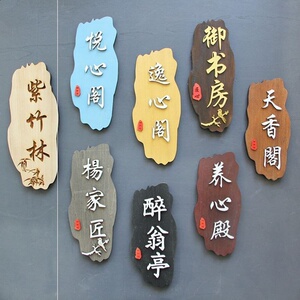 紫竹林
悦心阁
逸心阁
御书房
天香閣
楊家匠
醉翁亭
养心殿